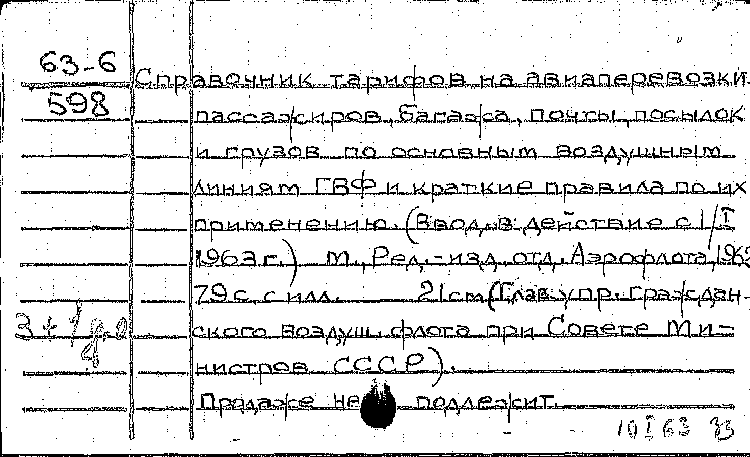 63-6
598
Справочник тарифов на авиаперевозки
пассажиров, багажа, почты, посылок
и грузов по основным воздушным
линиям ГВФ и краткие правила по их
применению. (Ввод. в действие с 1/I
1963 г.) М., Ред.-изд. отд. Аэрофлота, 196
79 с. с илл. 21 см (Глав. упр. граждан-
ского воздуш. флота при Совете Ми-
нистров СССР).
Продаже не подлежит.
10 I 63